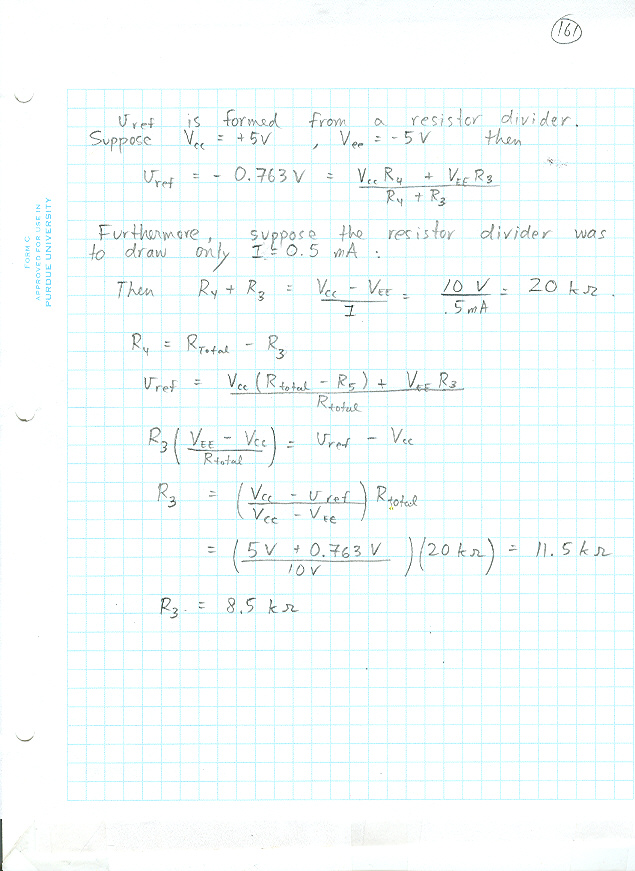 161
Vref is formed from a resistor divider.
Suppose Vcc = +5V , Vee = -5V then
Vref = - 0.763V = (Vcc R4 + VEE R3) / (R4 + R3)
Furthermore, suppose the resistor divider was
to draw only I = 0.5 mA :
Then R4 + R3 = (Vcc - VEE) / I = 10 V / .5mA = 20 kΩ .
R4 = RTotal - R3
Vref = (Vcc (Rtotal - R5) + VEE R3) / Rtotal
R3 ((VEE - Vcc) / Rtotal) = Vref - Vcc
R3 = ((Vcc - Vref) / (Vcc - VEE)) Rtotal
= ((5V + 0.763 V) / 10V) (20 kΩ) = 11.5 kΩ
R3 = 8.5 kΩ
FORM C
APPROVED FOR USE IN
PURDUE UNIVERSITY